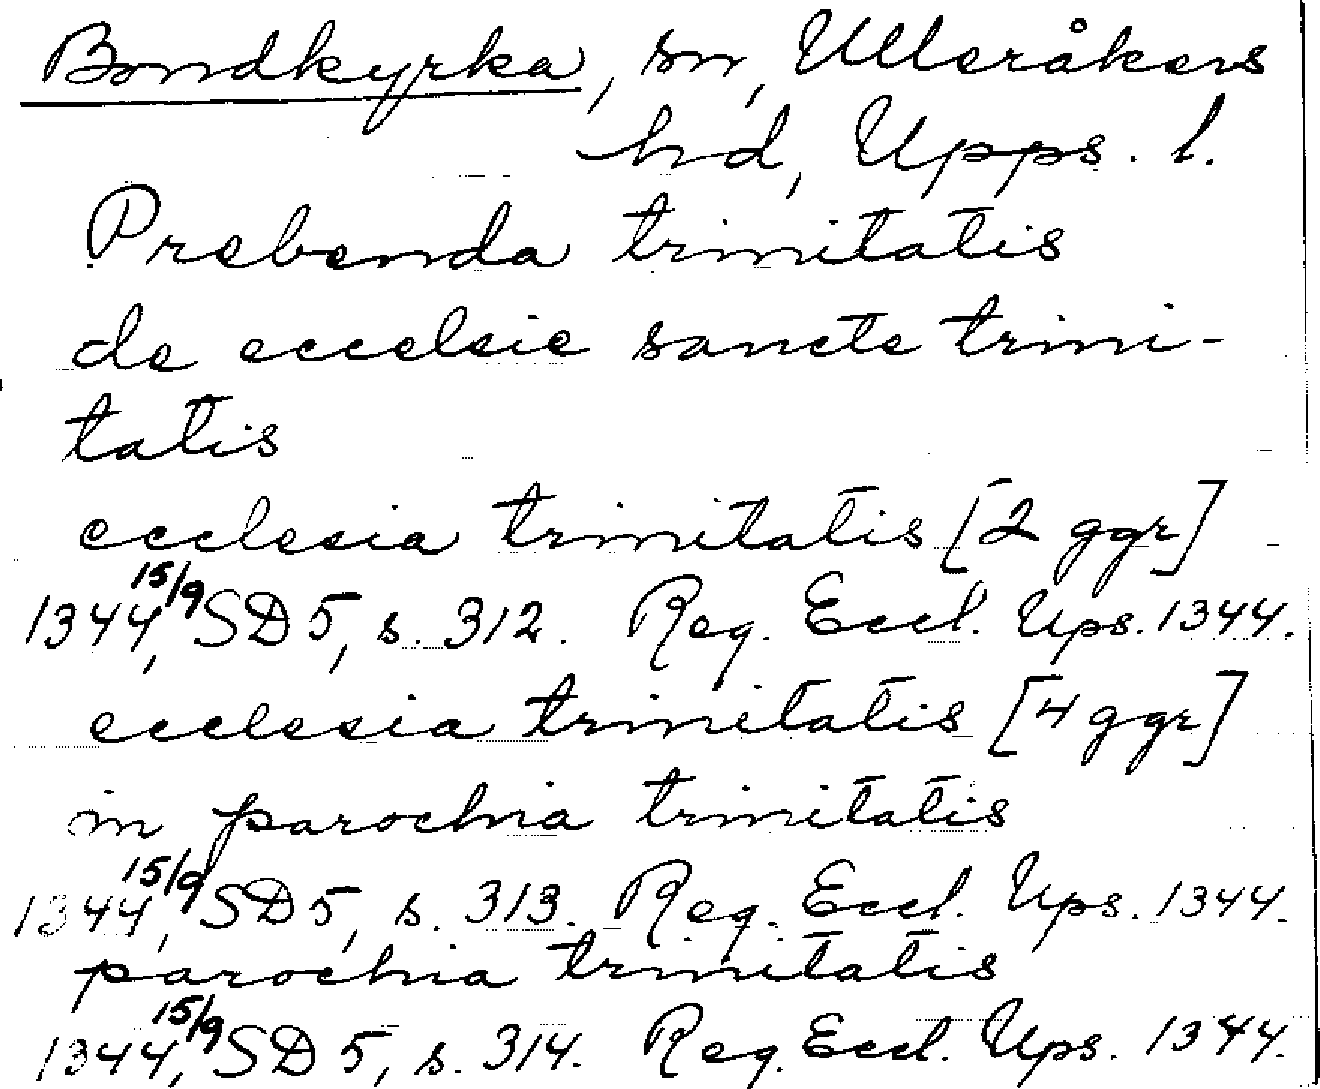 Bondkyrka, sn, Ulleråkers
hd, Upps. l.
Prebenda trinitatis
de eccelsie sancte trini-
tatis
ecclesia trinitatis [2 ggr]
1344, 15/9 SD 5, s. 312. Reg. Eccl. Ups. 1344.
ecclesia trinitatis [4 ggr]
in parochia trinitatis
1344, 15/9 SD 5, s. 313. Reg. Eccl. Ups. 1344.
parochia trinitatis
1344, 15/9 SD 5, s. 314. Reg. Eccl. Ups. 1344.